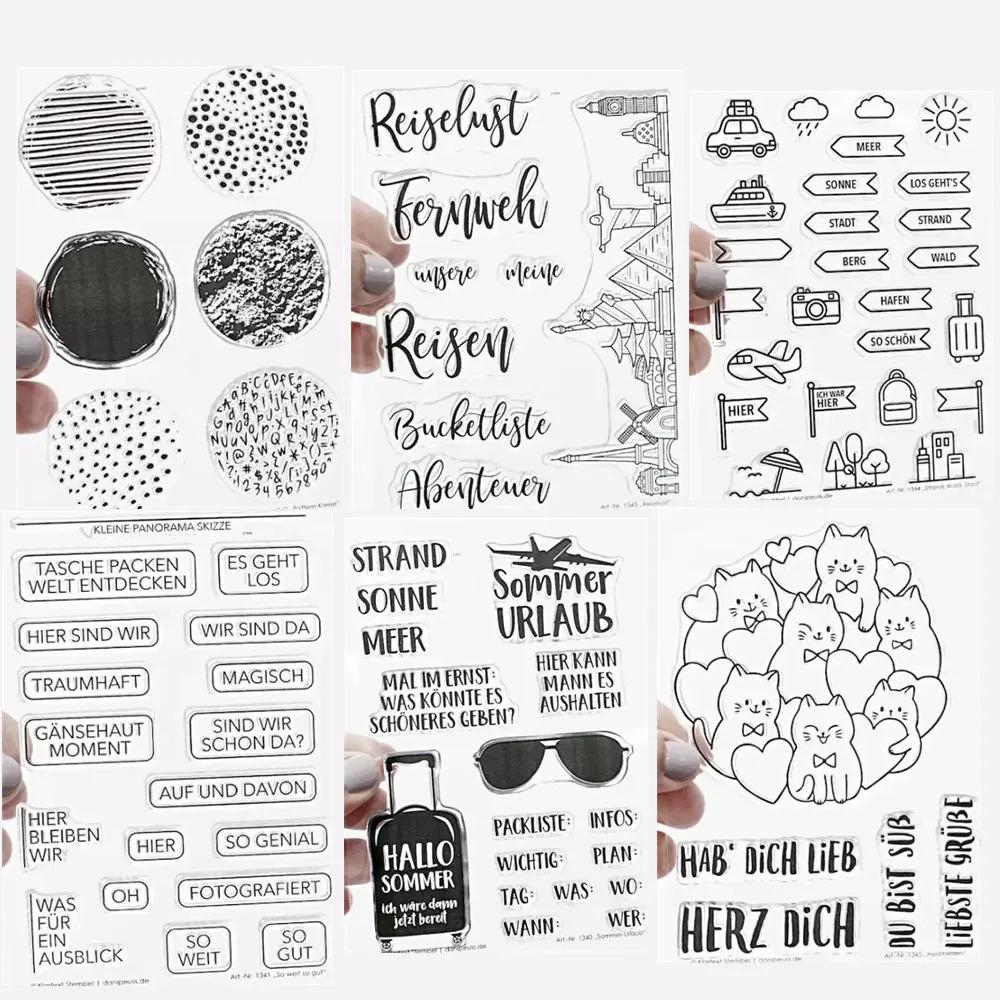 Reiselust
Fernweh
unsere meine
Reisen
Bucketliste
Abenteuer
Art.-Nr. 1343 „Reiselust“
MEER
SONNE
LOS GEHT'S
STADT
STRAND
BERG
WALD
HAFEN
SO SCHÖN
HIER
ICH WAR
HIER
Art.-Nr. 1344 „Strand, Wald, Stadt“
KLEINE PANORAMA SKIZZE
TASCHE PACKEN
WELT ENTDECKEN
ES GEHT
LOS
HIER SIND WIR
WIR SIND DA
TRAUMHAFT
MAGISCH
GÄNSEHAUT
MOMENT
SIND WIR
SCHON DA?
AUF UND DAVON
HIER
BLEIBEN
WIR
HIER
SO GENIAL
OH
FOTOGRAFIERT
WAS
FÜR
EIN
AUSBLICK
SO
WEIT
SO
GUT
© Klartext Stempel | danipeuss.de
Art.-Nr. 1341 „So weit so gut“
STRAND
SONNE
MEER
Sommer
URLAUB
MAL IM ERNST:
WAS KÖNNTE ES
SCHÖNERES GEBEN?
HIER KANN
MANN ES
AUSHALTEN
HALLO
SOMMER
ich wäre dann
jetzt bereit
PACKLISTE: INFOS:
WICHTIG: PLAN:
TAG: WAS: WO:
WANN: WER:
Stempel | danipeuss.de
Art.-Nr. 1340 „Sommer-Urlaub“
HAB' DiCH LiEB
HERZ DiCH
DU BiST SÜß
LiEBSTE GRÜßE
© Klartext Stempel | danipeuss.de